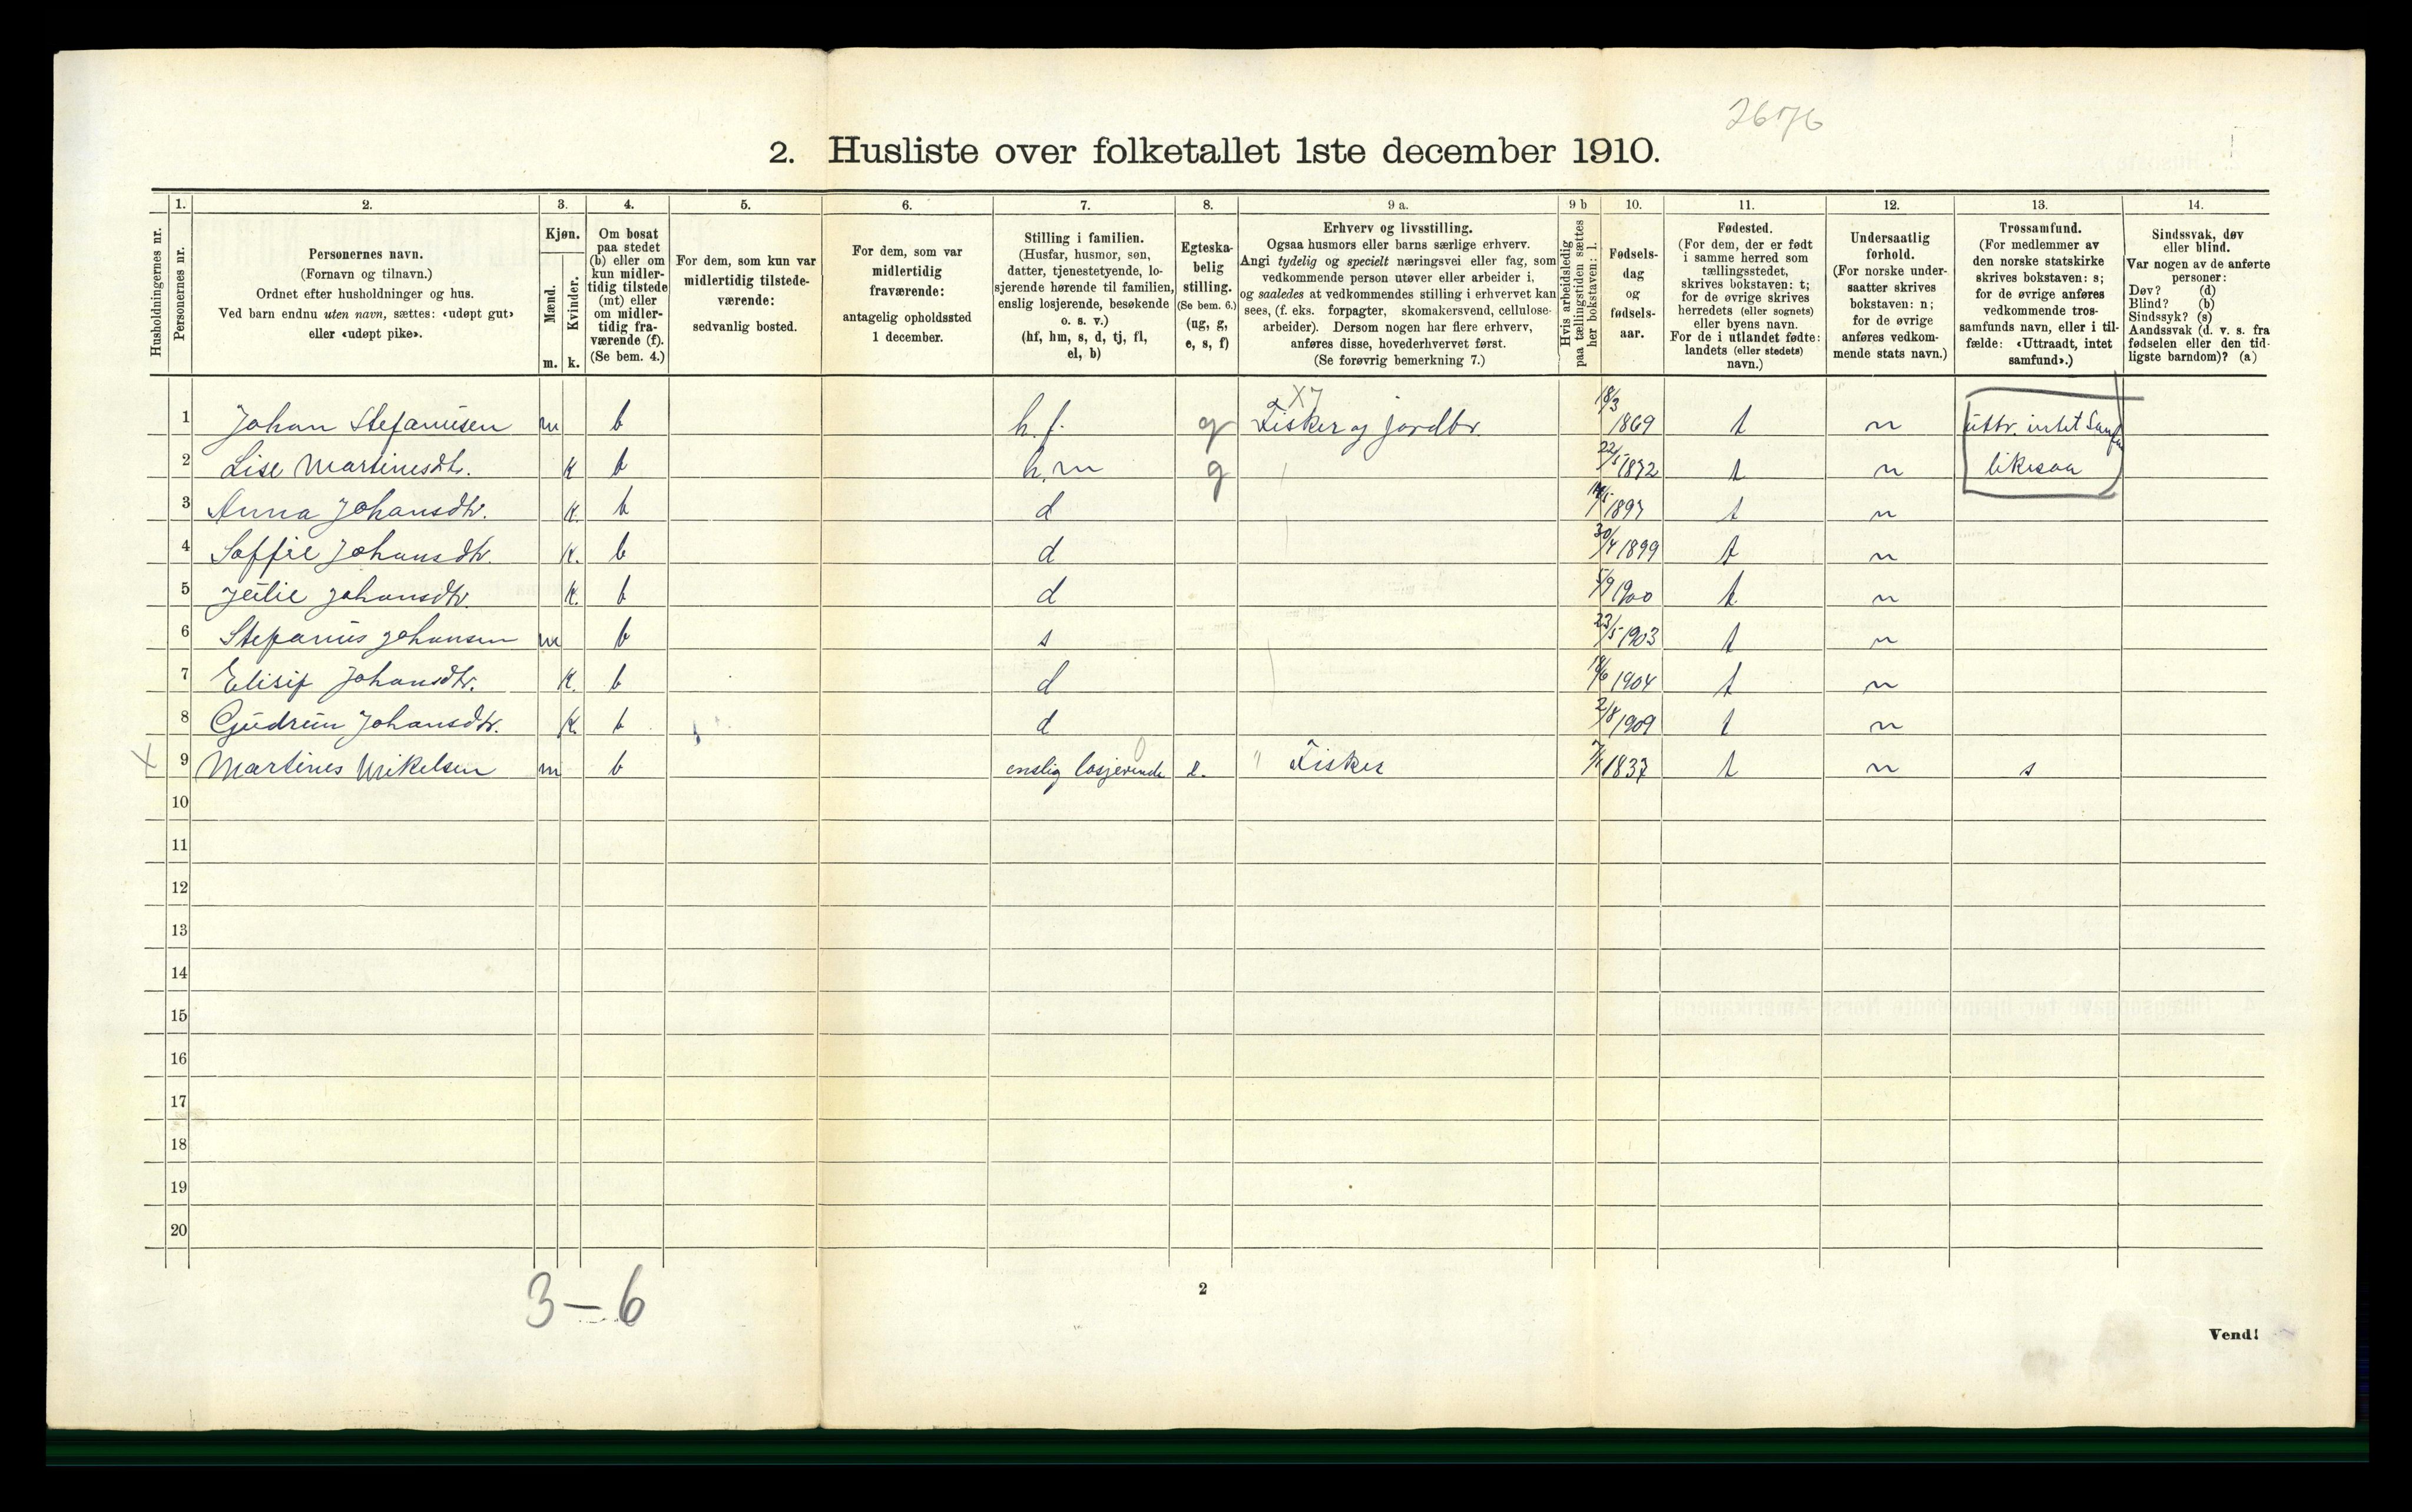 2676
2. Husliste over folketallet 1ste december 1910.
Husholdningernes nr.
1. Personernes nr.
2. Personernes navn.
(Fornavn og tilnavn.)
Ordnet efter husholdninger og hus.
Ved barn endnu uten navn, sættes: «udøpt gut»
eller «udøpt pike».
3. Kjøn.
Mænd. m.
Kvinder. k.
4. Om bosat
paa stedet
(b) eller om
kun midler-
tidig tilstede
(mt) eller
om midler-
tidig fra-
værende (f).
(Se bem. 4.)
5. For dem, som kun var
midlertidig tilstede-
værende:
sedvanlig bosted.
6. For dem, som var
midlertidig
fraværende:
antagelig opholdssted
1 december.
7. Stilling i familien.
(Husfar, husmor, søn,
datter, tjenestetyende, lo-
sjerende hørende til familien,
enslig losjerende, besøkende
o. s. v.)
(hf, hm, s, d, tj, fl,
el, b)
8. Egteska-
belig
stilling.
(Se bem. 6.)
(ug, g,
e, s, f)
9 a. Erhverv og livsstilling.
Ogsaa husmors eller barns særlige erhverv.
Angi tydelig og specielt næringsvei eller fag, som
vedkommende person utøver eller arbeider i,
og saaledes at vedkommendes stilling i erhvervet kan
sees, (f. eks. forpagter, skomakersvend, cellulose-
arbeider). Dersom nogen har flere erhverv,
anføres disse, hovederhvervet først.
(Se forøvrig bemerkning 7.)
9 b Hvis arbeidsledig
paa tællingstiden sættes
her bokstaven: l.
10. Fødsels-
dag
og
fødsels-
aar.
11. Fødested.
(For dem, der er født
i samme herred som
tællingsstedet,
skrives bokstaven: t;
for de øvrige skrives
herredets (eller sognets)
eller byens navn.
For de i utlandet fødte:
landets (eller stedets)
navn.)
12. Undersaatlig
forhold.
(For norske under-
saatter skrives
bokstaven: n;
for de øvrige
anføres vedkom-
mende stats navn.)
13. Trossamfund.
(For medlemmer av
den norske statskirke
skrives bokstaven: s;
for de øvrige anføres
vedkommende tros-
samfunds navn, eller i til-
fælde: «Uttraadt, intet
samfund».)
14. Sindssvak, døv
eller blind.
Var nogen av de anførte
personer:
Døv? (d)
Blind? (b)
Sindssyk? (s)
Aandssvak (d. v. s. fra
fødselen eller den tid-
ligste barndom)? (a)
X7
1 Johan Stefanusen m b h.f. g Fisker og jordbr. 18/3 1869 t n uttr. intet Samf
2 Lise Martinesdtr. k b h.m g 22/5 1872 t n likesaa
3 Anna Johansdtr. k. b d 1897 t n
4 Soffie Johansdtr. k. b d 30/4 1899 t n
5 Julie Johansdtr. k. b d 5/9 1900 t n
6 Stefanus Johansen m b s 23/5 1903 t n
7 Elisif Johansdtr. k. b d 18/6 1904 t n
8 Gudrun Johansdtr. k. b d 2/8 1909 t n
X 9 Martines Mikelsen m b enslig losjerende e. " Fisker 1837 t n s
10
11
12
13
14
15
16
17
18
19
20
3 – 6
2
Vend!